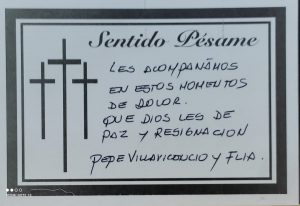 Sentido Pésame
LES ACOMPAÑAMOS
EN ESTOS MOMENTOS
DE DOLOR.
QUE DIOS LES DE
PAZ Y RESIGNACION
PEPE VILLAVICENCIO Y FLIA.